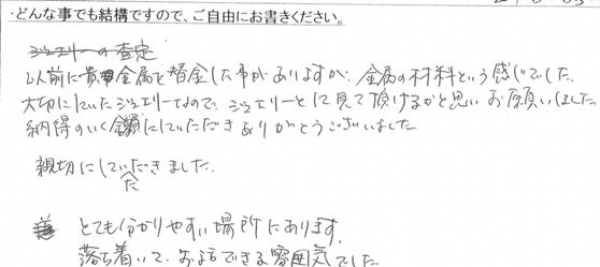 ・どんな事でも結構ですので、ご自由にお書きください。
ジュエリーの査定
以前に貴金属を換金した事がありますが、金属の材料という感じでした。
大切にしていたジュエリーなので、ジュエリーとして見て頂けるかと思いお願いしました。
納得のいく金額にしていただきありがとうございました。
親切にしていただきました。
とても分かりやすい場所にあります。
落ち着いて、お話できる雰囲気でした。